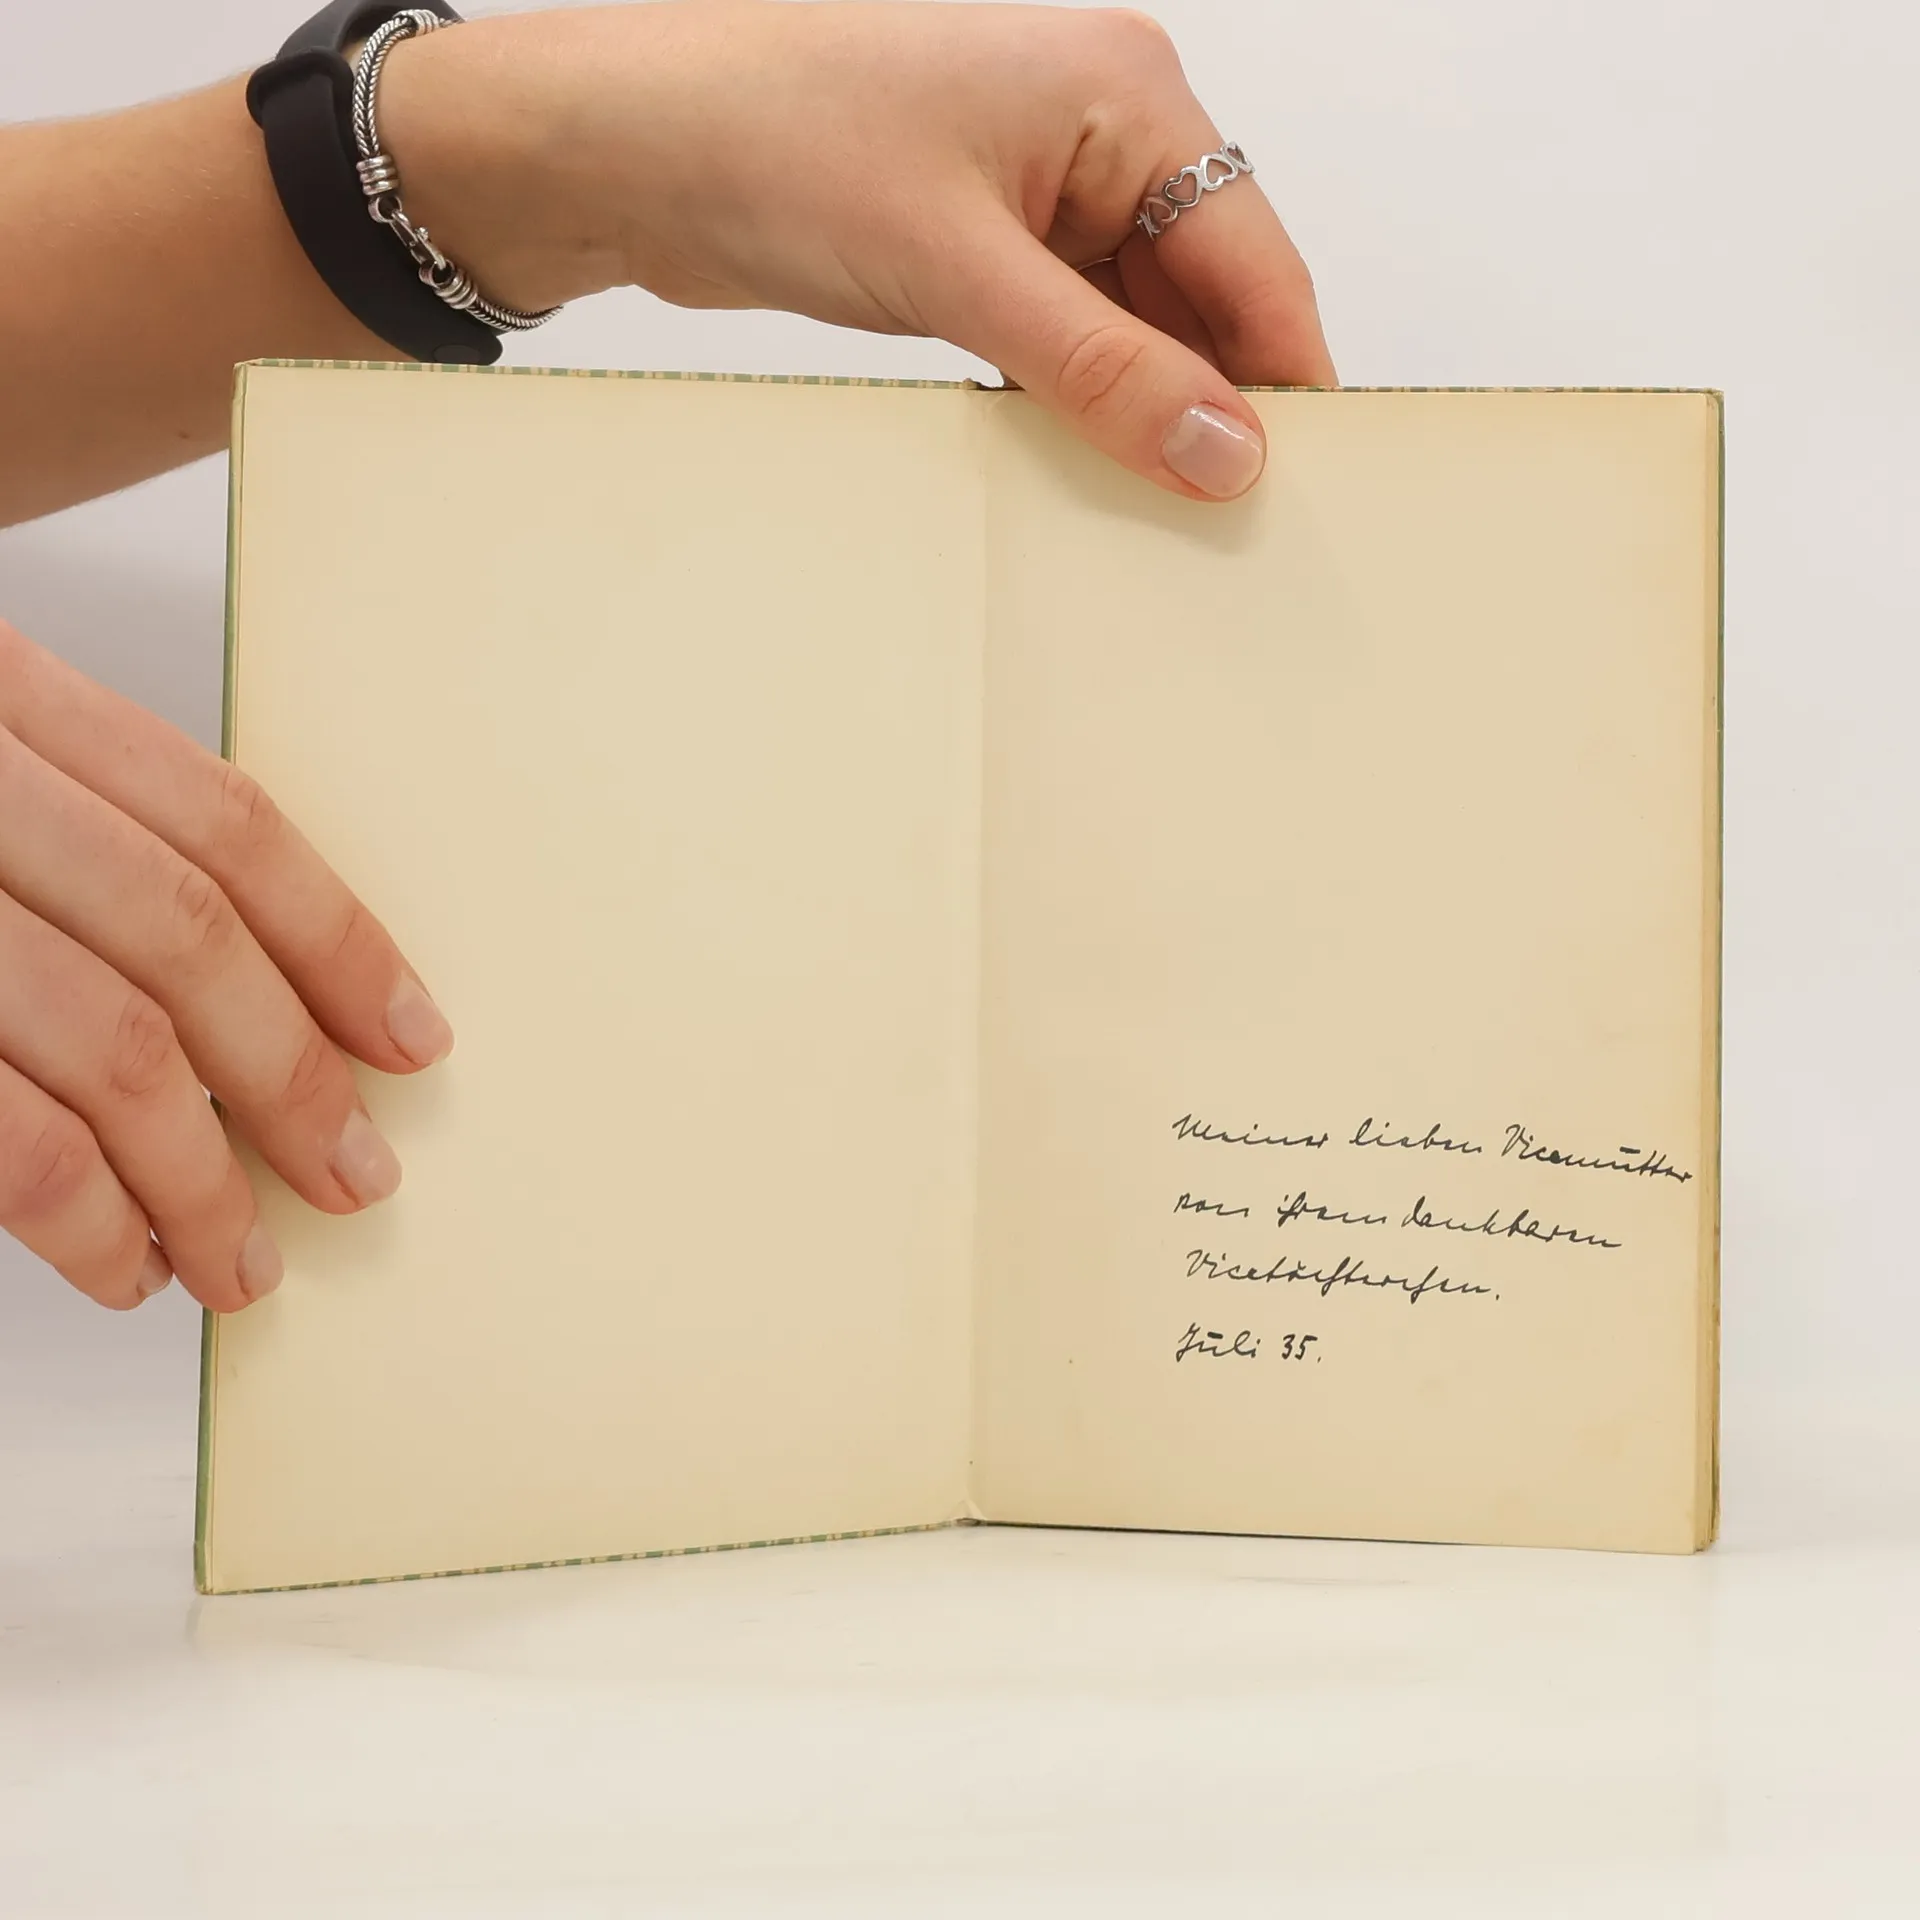 Meiner lieben Vicemutter
von ihrem dankbaren
Vicetöchterchen.
Juli 35.